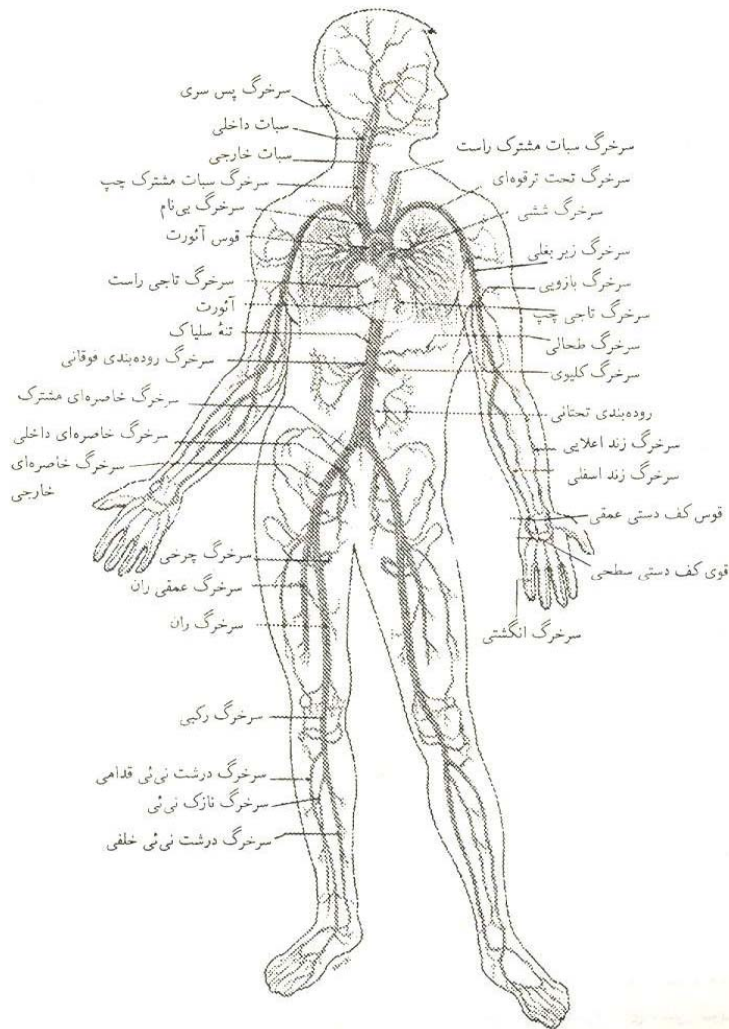 سرخرگ پس سری
سبات داخلی
سبات خارجی
سرخرگ سبات مشترک چپ
سرخرگ بی‌نام
قوس آئورت
سرخرگ تاجی راست
آئورت
تنهٔ سلیاک
سرخرگ روده‌بندی فوقانی
سرخرگ خاصره‌ای مشترک
سرخرگ خاصره‌ای داخلی
سرخرگ خاصره‌ای
خارجی
سرخرگ چرخی
سرخرگ عمقی ران
سرخرگ ران
سرخرگ رکبی
سرخرگ درشت نی‌ئی قدامی
سرخرگ نازک نی‌ئی
سرخرگ درشت نی‌ئی خلفی
سرخرگ سبات مشترک راست
سرخرگ تحت ترقوه‌ای
سرخرگ ششی
سرخرگ زیر بغلی
سرخرگ بازویی
سرخرگ تاجی چپ
سرخرگ طحالی
سرخرگ کلیوی
روده‌بندی تحتانی
سرخرگ زند اعلایی
سرخرگ زند اسفلی
قوس کف دستی عمقی
قوی کف دستی سطحی
سرخرگ انگشتی